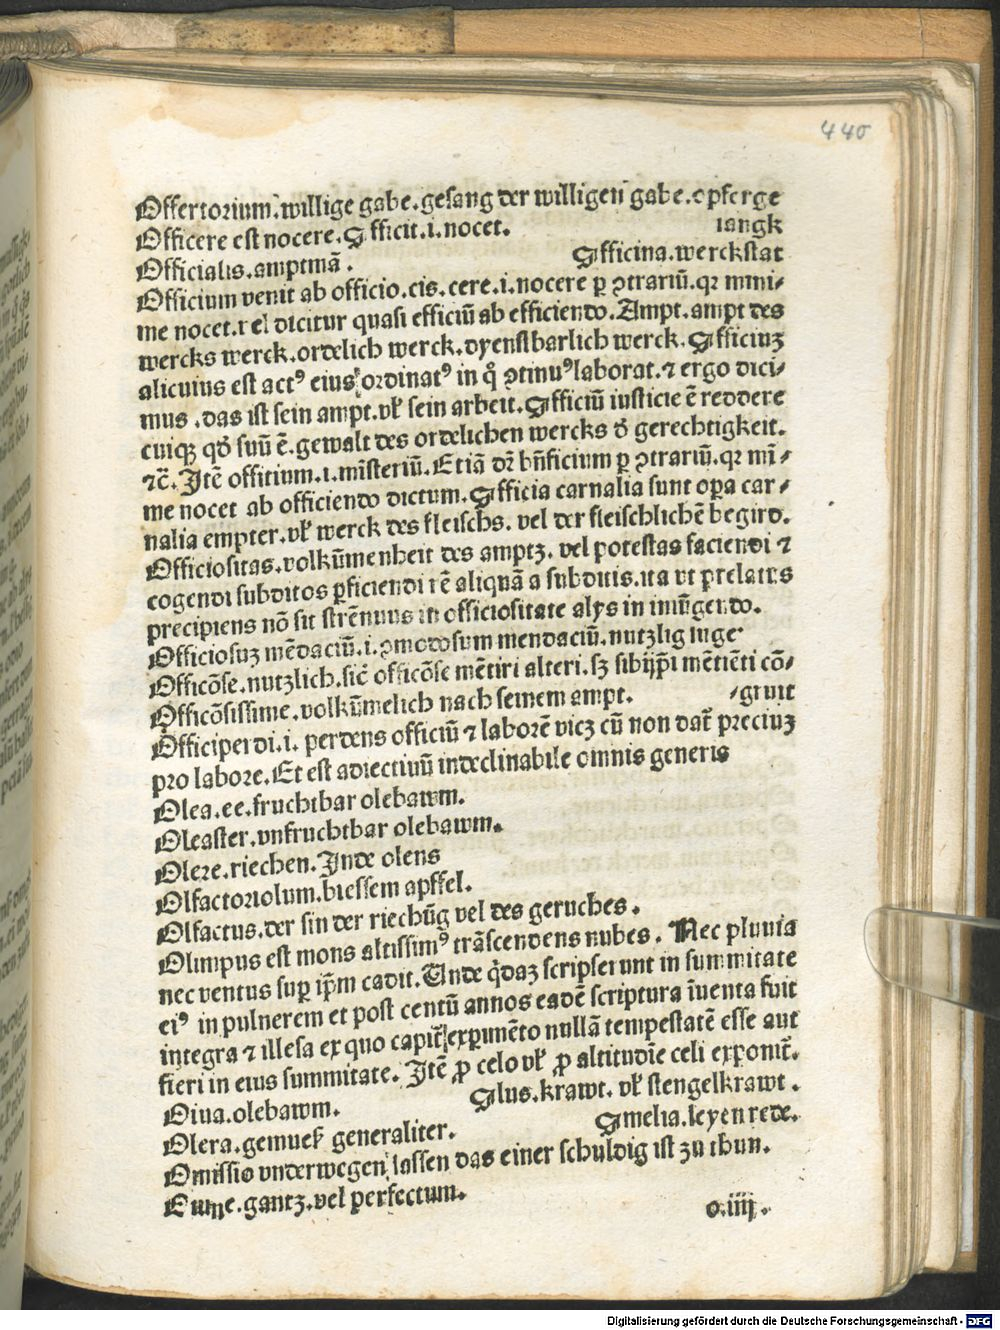 440
Offertorium.willige gabe.gesang der willigen gabe.opferge
Officere est nocere.Officit.i.nocet. sangk
Officialis.amptmā. Officina.werckstat
Officium venit ab officio.cis.cere.i.nocere ꝑ ꝯtrariū.qꝛ mini-
me nocet.vel dicitur quasi efficiū ab efficiendo.Ampt.ampt des
wercks werck.ordelich werck.dyenstbarlich werck.Officiuꝫ
alicuius est actꝰ eius ordinatꝰ in q̊ ꝯtinuꝰ laborat.⁊ ergo dici-
mus.das ist sein ampt.vł sein arbeit.Officiū iusticie ē reddere
cuiqꝫ qđ suū ē.gewalt des ordelichen wercks đ gerechtigkeit.
⁊c̄.Itē offitium.i.misteriū.Etiā dꝛ bn̄ficium ꝑ ꝯtrariū.qꝛ mī-
me nocet ab officiendo dictum.Officia carnalia sunt oꝑa car-
nalia empter.vł werck des fleischs.vel der fleischlichē begird.
Officiositas.volkūmenheit des amptz.vel potestas faciendi ⁊
cogendi subditos ꝑficiendi rē aliquā a subditis.ita vt prelatꝰ
precipiens nō sit strēnuus in officiositate alys in iniūgendo.
Officiosuꝫ mēdaciū.i.ꝯmodosum mendaciū.nutzlig luge
Officōse.nutzlich.sic̄ officōse mētiri alteri.sꝫ sibijpi mētiēti cō-
Officōsissime.volkūmelich nach seinem ampt. -gruit
Officiperdi.i. perdens officiū ⁊ laborē vicꝫ cū non dat̄ preciuꝫ
pro labore.Et est adiectiuū indeclinabile omnis generis
Olea.ee.fruchtbar olebawm.
Oleaster.vnfruchtbar olebawm.
Olere.riechen.Inde olens
Olfactoriolum.biessem apffel.
Olfactus.der sin der riechūg vel des geruches.
Olimpus est mons altissimꝰ trāscendens nubes. Nec pluuia
nec ventus suꝑ ip̄m cadit.Unde q̇daꝫ scripserunt in summitate
eiꝰ in pulnerem et post centū annos eadē scriptura īuenta fuit
integra ⁊ illesa ex quo capit̄ exꝑimēto nullā tempestatē esse aut
fieri in eius summitate. Itē ꝓ celo vł ꝓ altitudīe celi exponit̄.
Oiua.olebawm. Olus.krawt. vł stengelkrawt.
Olera.gemueß generaliter. Omelia.leyenrede.
Omissio vnderwegen lassen das einer schuldig ist zu thun.
Eume.gantz.vel perfectum.
o.iiij.
Digitalisierung gefördert durch die Deutsche Forschungsgemeinschaft - DFG